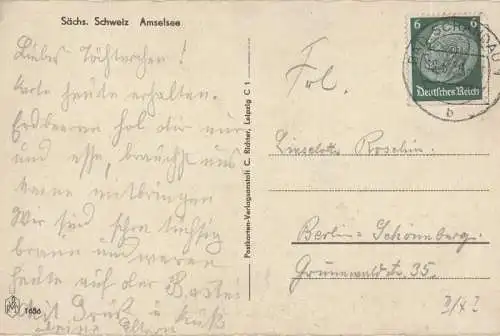 Sächs. Schweiz Amselsee
Liebes Töchterchen!
Karte heute erhalten.
Erdbeeren hol dir nur
und esse, brauchst uns
keine mitbringen
Wir sind schon tüchtig
braun und waren
heute auf der Bastei
Mit Gruß u Kuß
deine Eltern
1636
Postkarten-Verlagsanstalt C. Richter, Leipzig C 1
6 6
Deutsches Reich
BAD SCHANDAU
b
Frl.
Roschin
Berlin-Schöneberg.
Grunewaldstr. 35.